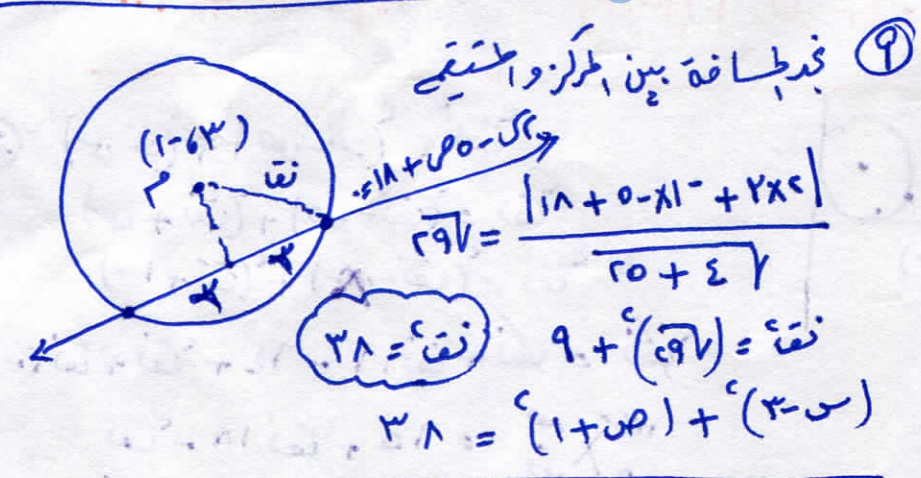 ٩ نجد المسافة بين المركز و المستقيم
(٣، -١)
م
نق
٢س - ٥ص + ١٨ = ٠
|٢×٣ + -١×-٥ + ١٨| / √(٤ + ٢٥) = √٢٩
٣ ٣
نق² = (√٢٩)² + ٩
نق² = ٣٨
(س-٣)² + (ص+١)² = ٣٨